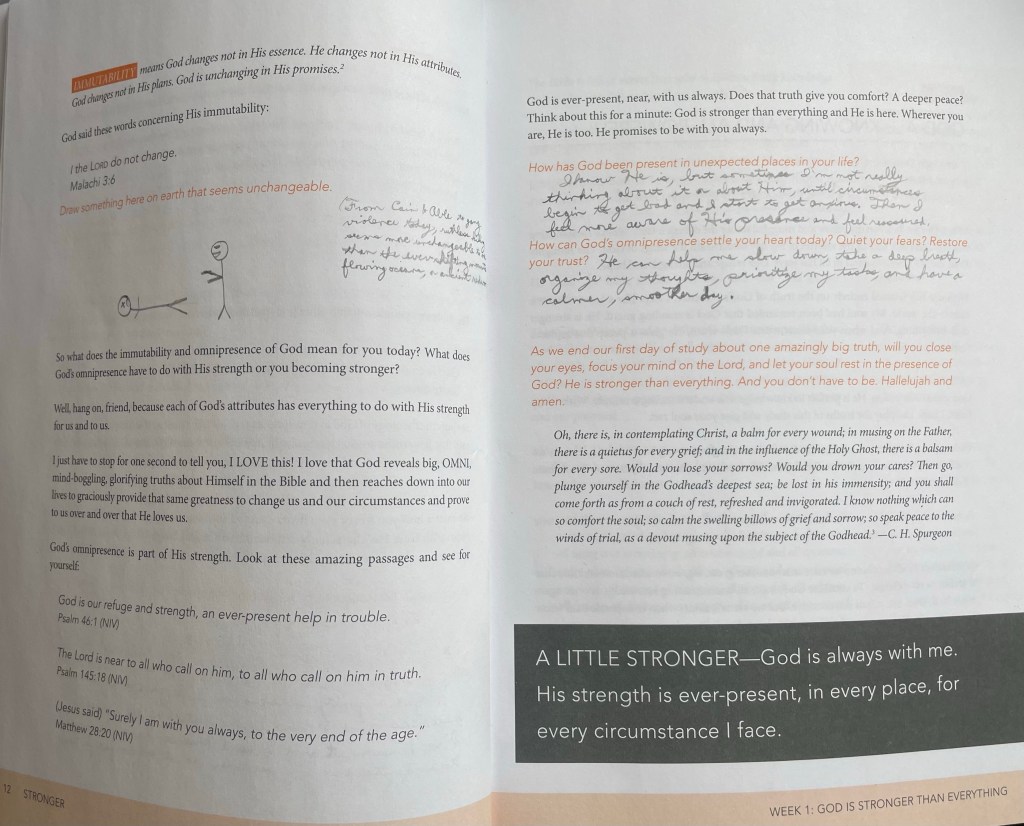 IMMUTABILITY means God changes not in His essence. He changes not in His attributes.
God changes not in His plans. God is unchanging in His promises.²
God said these words concerning His immutability:
I the LORD do not change.
Malachi 3:6
Draw something here on earth that seems unchangeable.
From Cain & Able to
violence today, ruthless
seems more unchangeable
than the ever
flowing oceans, or ancient
So what does the immutability and omnipresence of God mean for you today? What does
God's omnipresence have to do with His strength or you becoming stronger?
Well, hang on, friend, because each of God's attributes has everything to do with His strength
for us and to us.
I just have to stop for one second to tell you, I LOVE this! I love that God reveals big, OMNI,
mind-boggling, glorifying truths about Himself in the Bible and then reaches down into our
lives to graciously provide that same greatness to change us and our circumstances and prove
to us over and over that He loves us.
God's omnipresence is part of His strength. Look at these amazing passages and see for
yourself:
God is our refuge and strength, an ever-present help in trouble.
Psalm 46:1 (NIV)
The Lord is near to all who call on him, to all who call on him in truth.
Psalm 145:18 (NIV)
(Jesus said) “Surely I am with you always, to the very end of the age.”
Matthew 28:20 (NIV)
12 STRONGER
God is ever-present, near, with us always. Does that truth give you comfort? A deeper peace?
Think about this for a minute: God is stronger than everything and He is here. Wherever you
are, He is too. He promises to be with you always.
How has God been present in unexpected places in your life?
I know He is, but sometimes I'm not really
thinking about it or about Him, until circumstances
begin to get bad and I start to get anxious. Then I
feel more aware of His presence and feel reassured.
How can God's omnipresence settle your heart today? Quiet your fears? Restore
your trust? He can help me slow down, take a deep breath,
organize my thoughts, prioritize my tasks, and have a
calmer, smoother day.
As we end our first day of study about one amazingly big truth, will you close
your eyes, focus your mind on the Lord, and let your soul rest in the presence of
God? He is stronger than everything. And you don't have to be. Hallelujah and
amen.
Oh, there is, in contemplating Christ, a balm for every wound; in musing on the Father,
there is a quietus for every grief; and in the influence of the Holy Ghost, there is a balsam
for every sore. Would you lose your sorrows? Would you drown your cares? Then go,
plunge yourself in the Godhead's deepest sea; be lost in his immensity; and you shall
come forth as from a couch of rest, refreshed and invigorated. I know nothing which can
so comfort the soul; so calm the swelling billows of grief and sorrow; so speak peace to the
winds of trial, as a devout musing upon the subject of the Godhead.³ —C. H. Spurgeon
A LITTLE STRONGER—God is always with me.
His strength is ever-present, in every place, for
every circumstance I face.
WEEK 1: GOD IS STRONGER THAN EVERYTHING